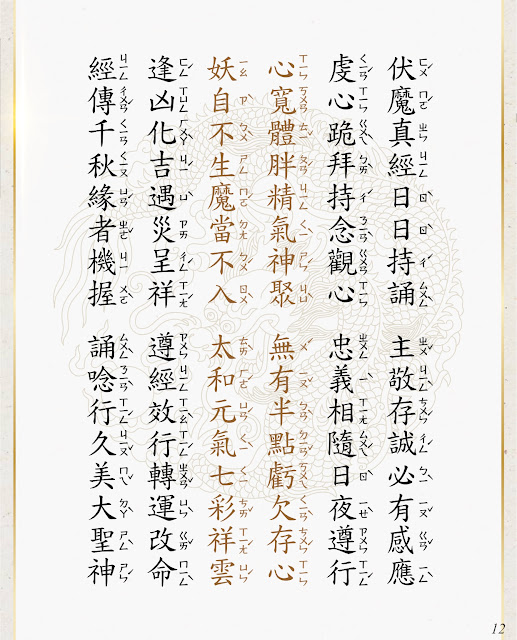 伏魔真經日日持誦 主敬存誠必有感應
虔心跪拜持念觀心 忠義相隨日夜遵行
心寬體胖精氣神聚 無有半點虧欠存心
妖自不生魔當不入 太和元氣七彩祥雲
逢凶化吉遇災呈祥 遵經效行轉運改命
經傳千秋緣者機握 誦唸行久美大聖神
12